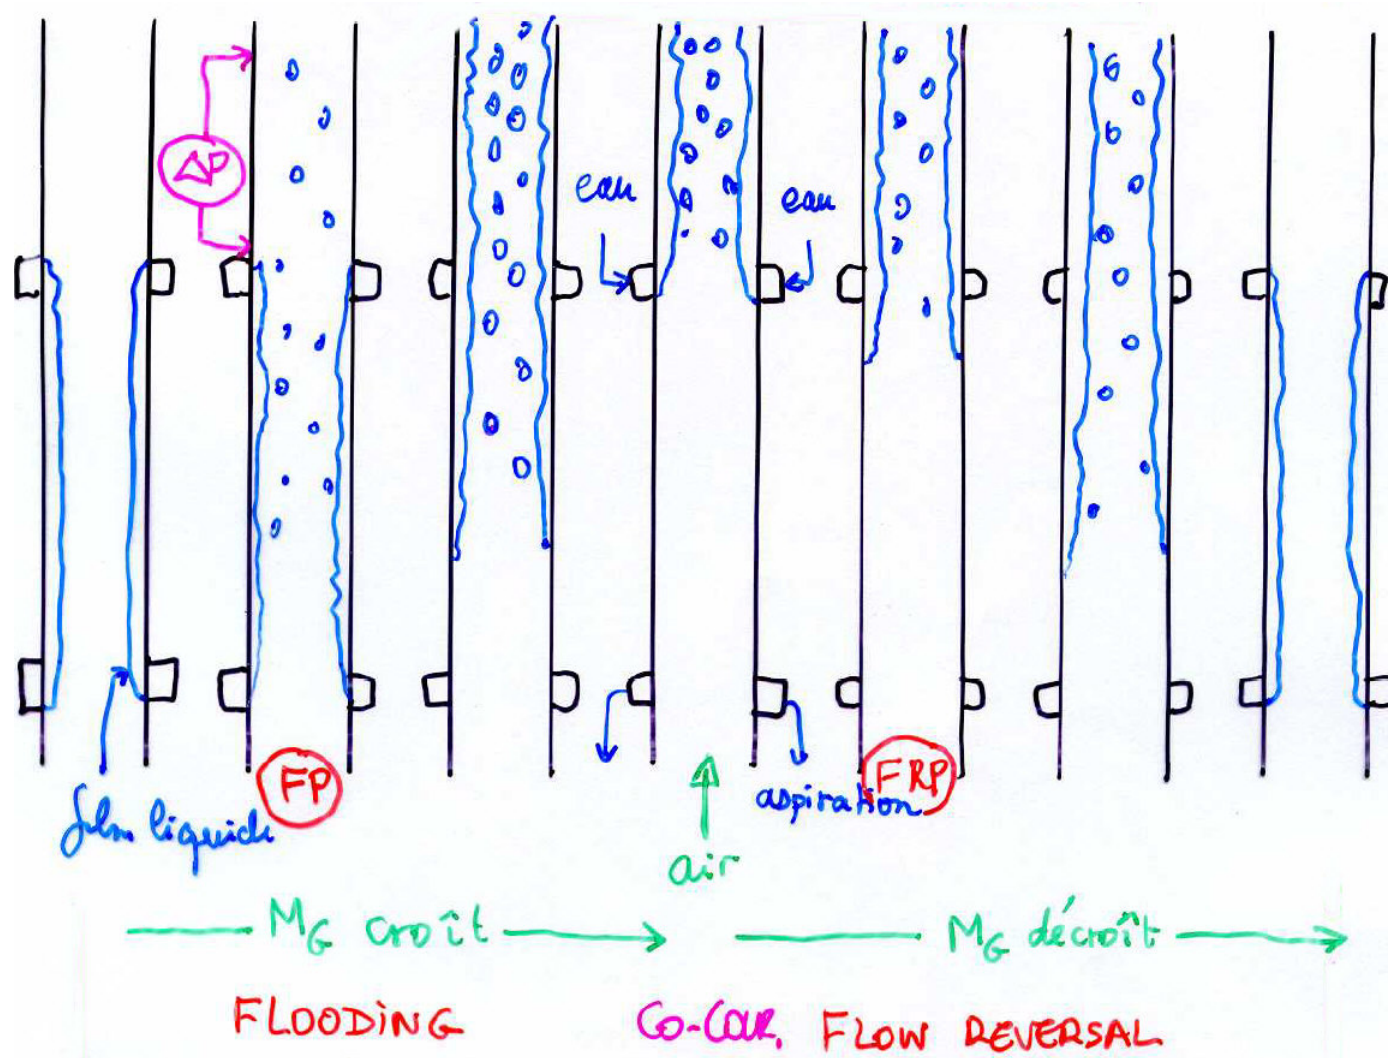 ΔP
eau
eau
FP
FRP
film liquide
aspiration
air
M_G croît
M_G décroît
FLOODING
CO-COUR.
FLOW REVERSAL